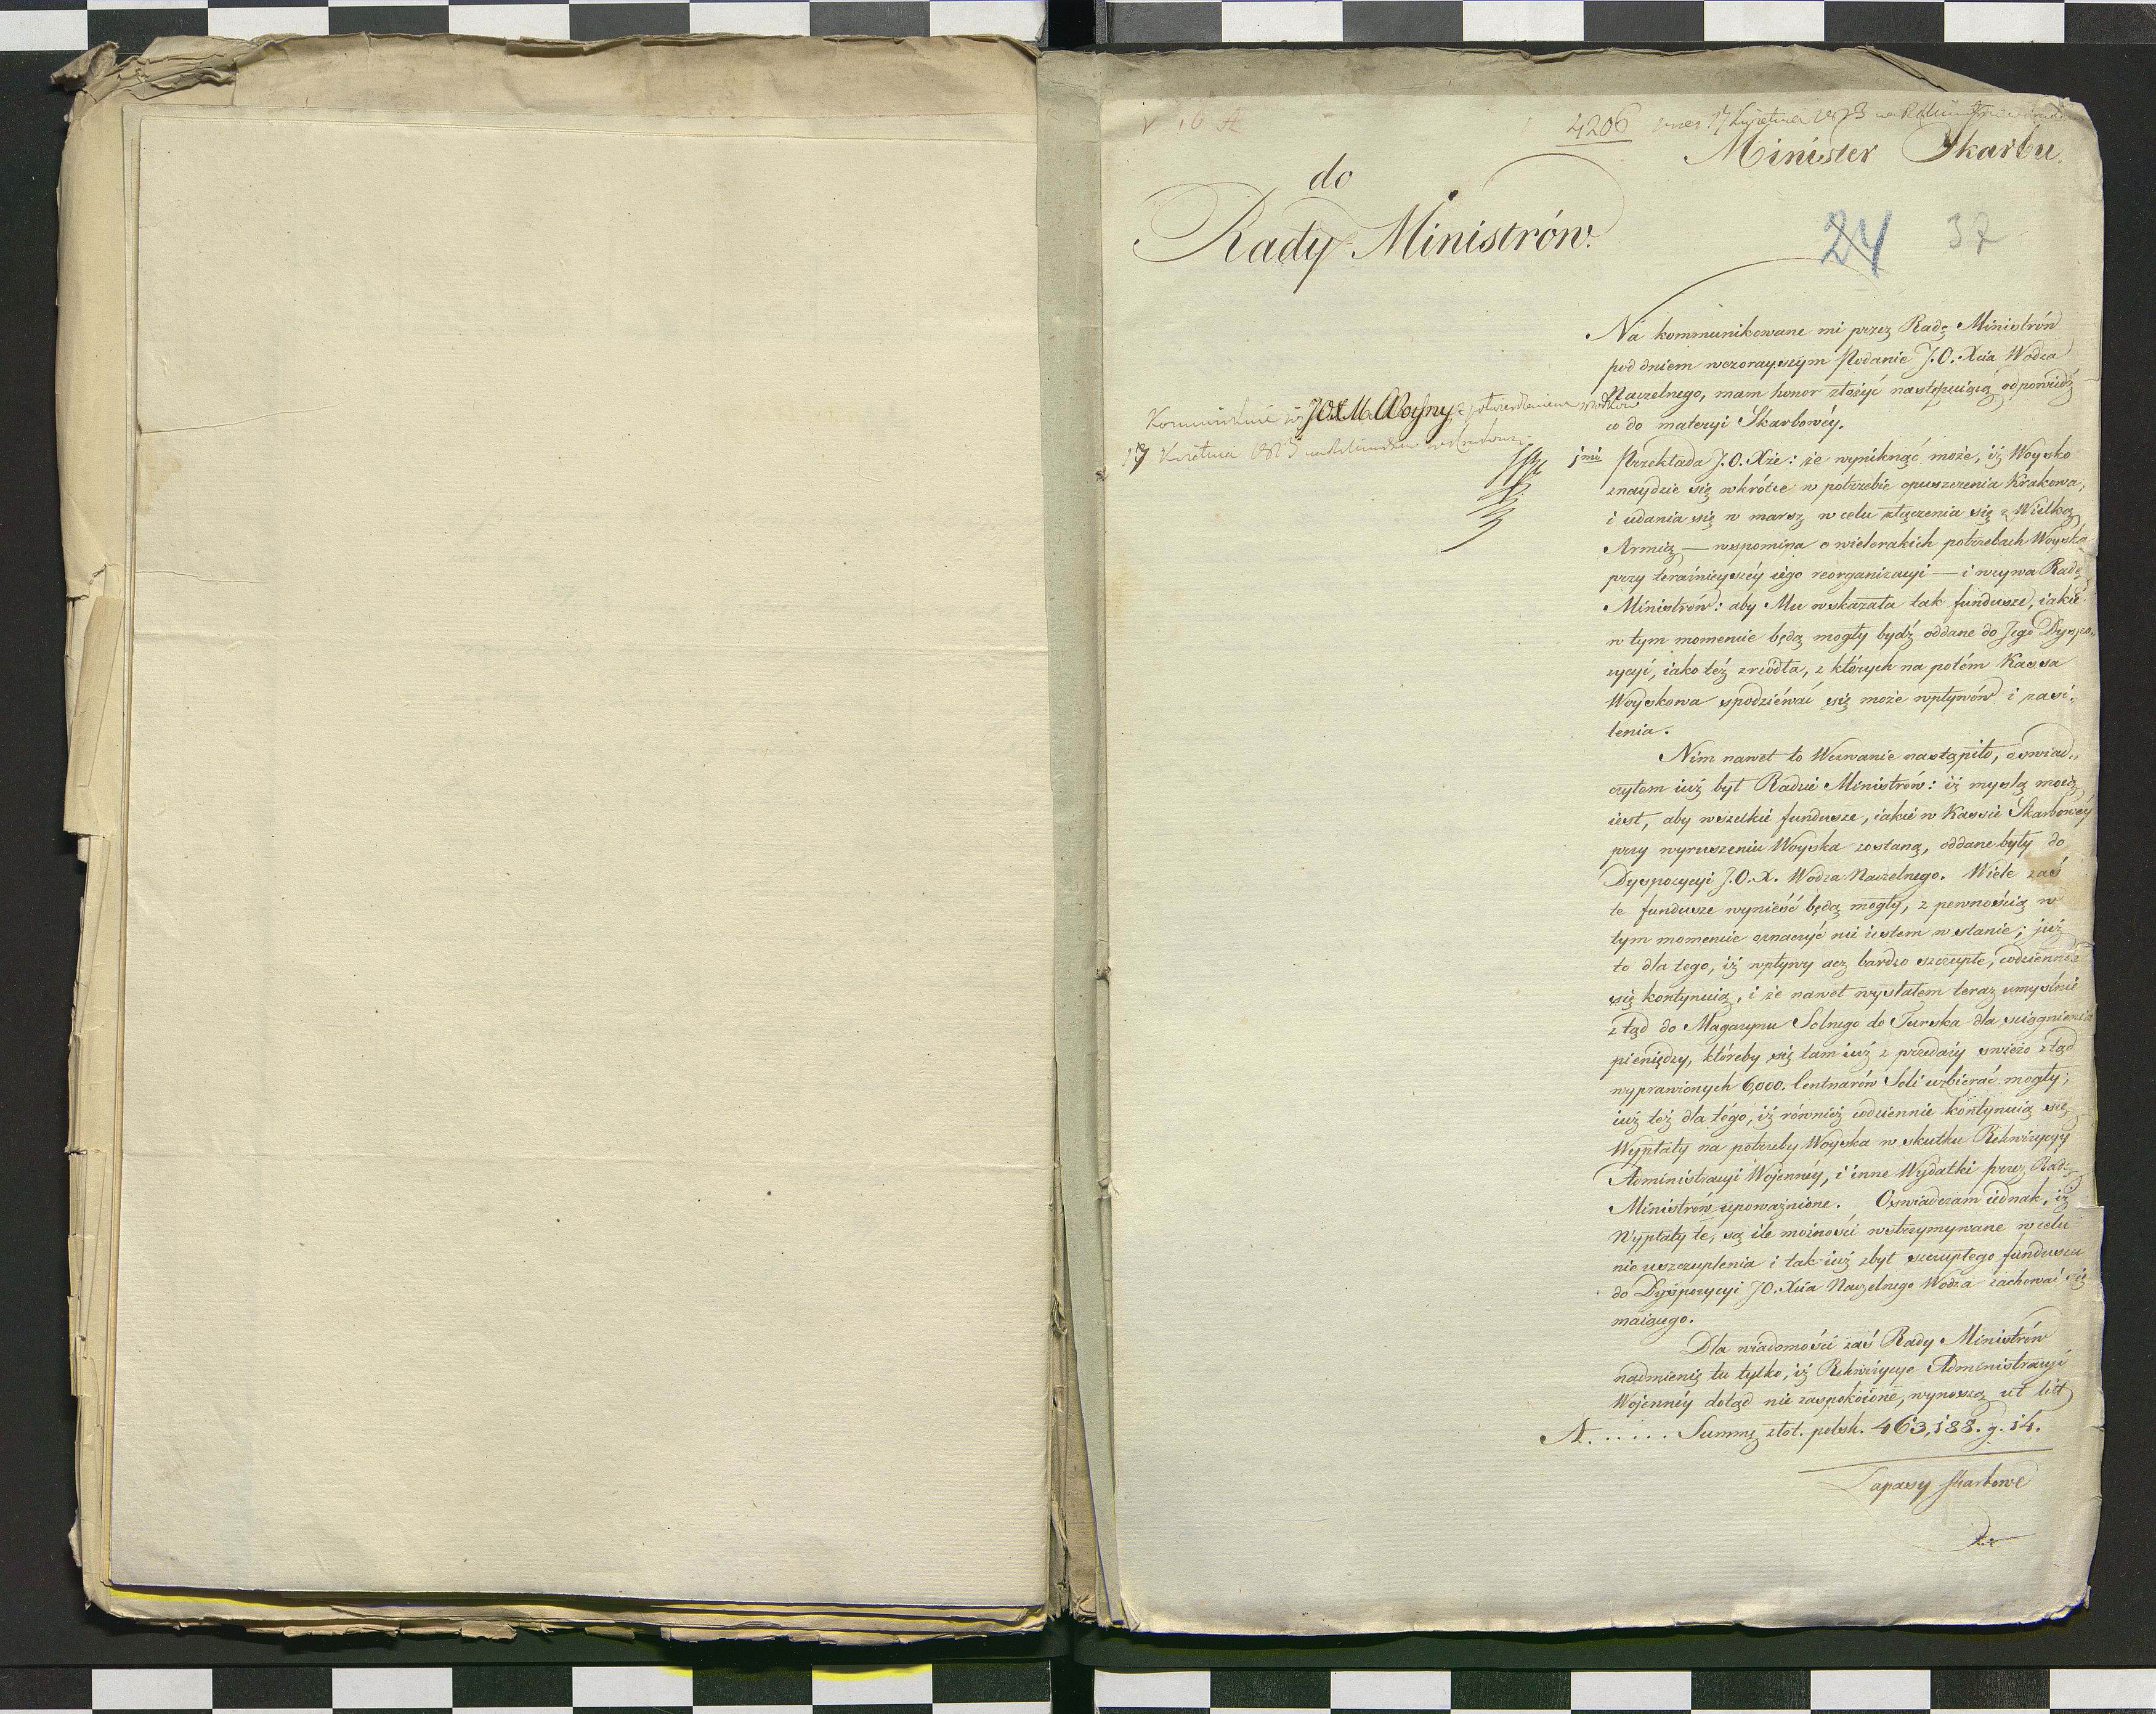 4206
17 Kwietnia 1813
Minister Skarbu
do
Rady Ministrów.
24 37
Na kommunikowane mi przez Radę Ministrów
pod dniem wczorayszym Podanie J.O. Xcia Wodza
Naczelnego, mam honor złożyć następuiącą odpowiedź
co do materyi Skarbowéy.
17 Kwietnia 1813
1mo Przekłada J.O. Xże: że wyniknąć może, iż Woysko
znaydzie się wkrótce w potrzebie opuszczenia Krakowa,
i udania się w marsz w celu złączenia się z Wielką
Armią — wspomina o wielorakich potrzebach Woyska
przy teraźnieyszéy iego reorganizacyi — i wzywa Radę
Ministrów: aby Mu wskazała tak fundusze, iakie
w tym momencie będą mogły bydź oddane do Jego Dyspo„
zycyi, iako też zrzódła, z których na potém Kassa
Woyskowa spodziéwać się może wpływów i zasi„
lenia.
Nim nawet to Wezwanie nastąpiło, oswiad„
czyłem iuż był Radzie Ministrów: iż myslą moią
iest, aby wszelkie fundusze, iakie w Kassie Skarbowéy
przy wyruszeniu Woyska zostaną, oddane były do
Dyspozycyi J.O.X. Wodza Naczelnego. Wiele zaś
te fundusze wynieść będą mogły, z pewnością w
tym momencie oznaczyć nie iestem w stanie; już
to dla tego, iż wpływy acz bardzo szczupłe, codziennie
się kontynuią, i że nawet wysłałem teraz umyślnie
ztąd do Magazynu Solnego do Turska dla sciągnienia
pieniędzy, któreby się tam iuż z przedaży swieżo ztąd
wyprawionych 6,000. Centnarów Soli uzbierać mogły;
iuż też dla tégo, iż również codziennie kontynuią się
Wypłaty na potrzeby Woyska w skutku Rekwizycyy
Administracyi Wojennéy, i inne Wydatki przez Radę
Ministrów upoważnione. Oswiadczam iednak, iż
Wypłaty te, są ile możności wstrzymywane w celu
nie uszczuplenia i tak iuż zbyt szczupłego funduszu
do Dyspozycyi JO. Xcia Naczelnego Wodza zachować się
maiącego.
Dla wiadomości zaś Rady Ministrów
nadmienię tu tylko, iż Rekwizycye Administracyi
Wojennéy dotąd nie zaspokoione, wynoszą ut lit
A. . . . . . Summę złot. polsk. 463,188. g. 14.
Zapasy skarbowe